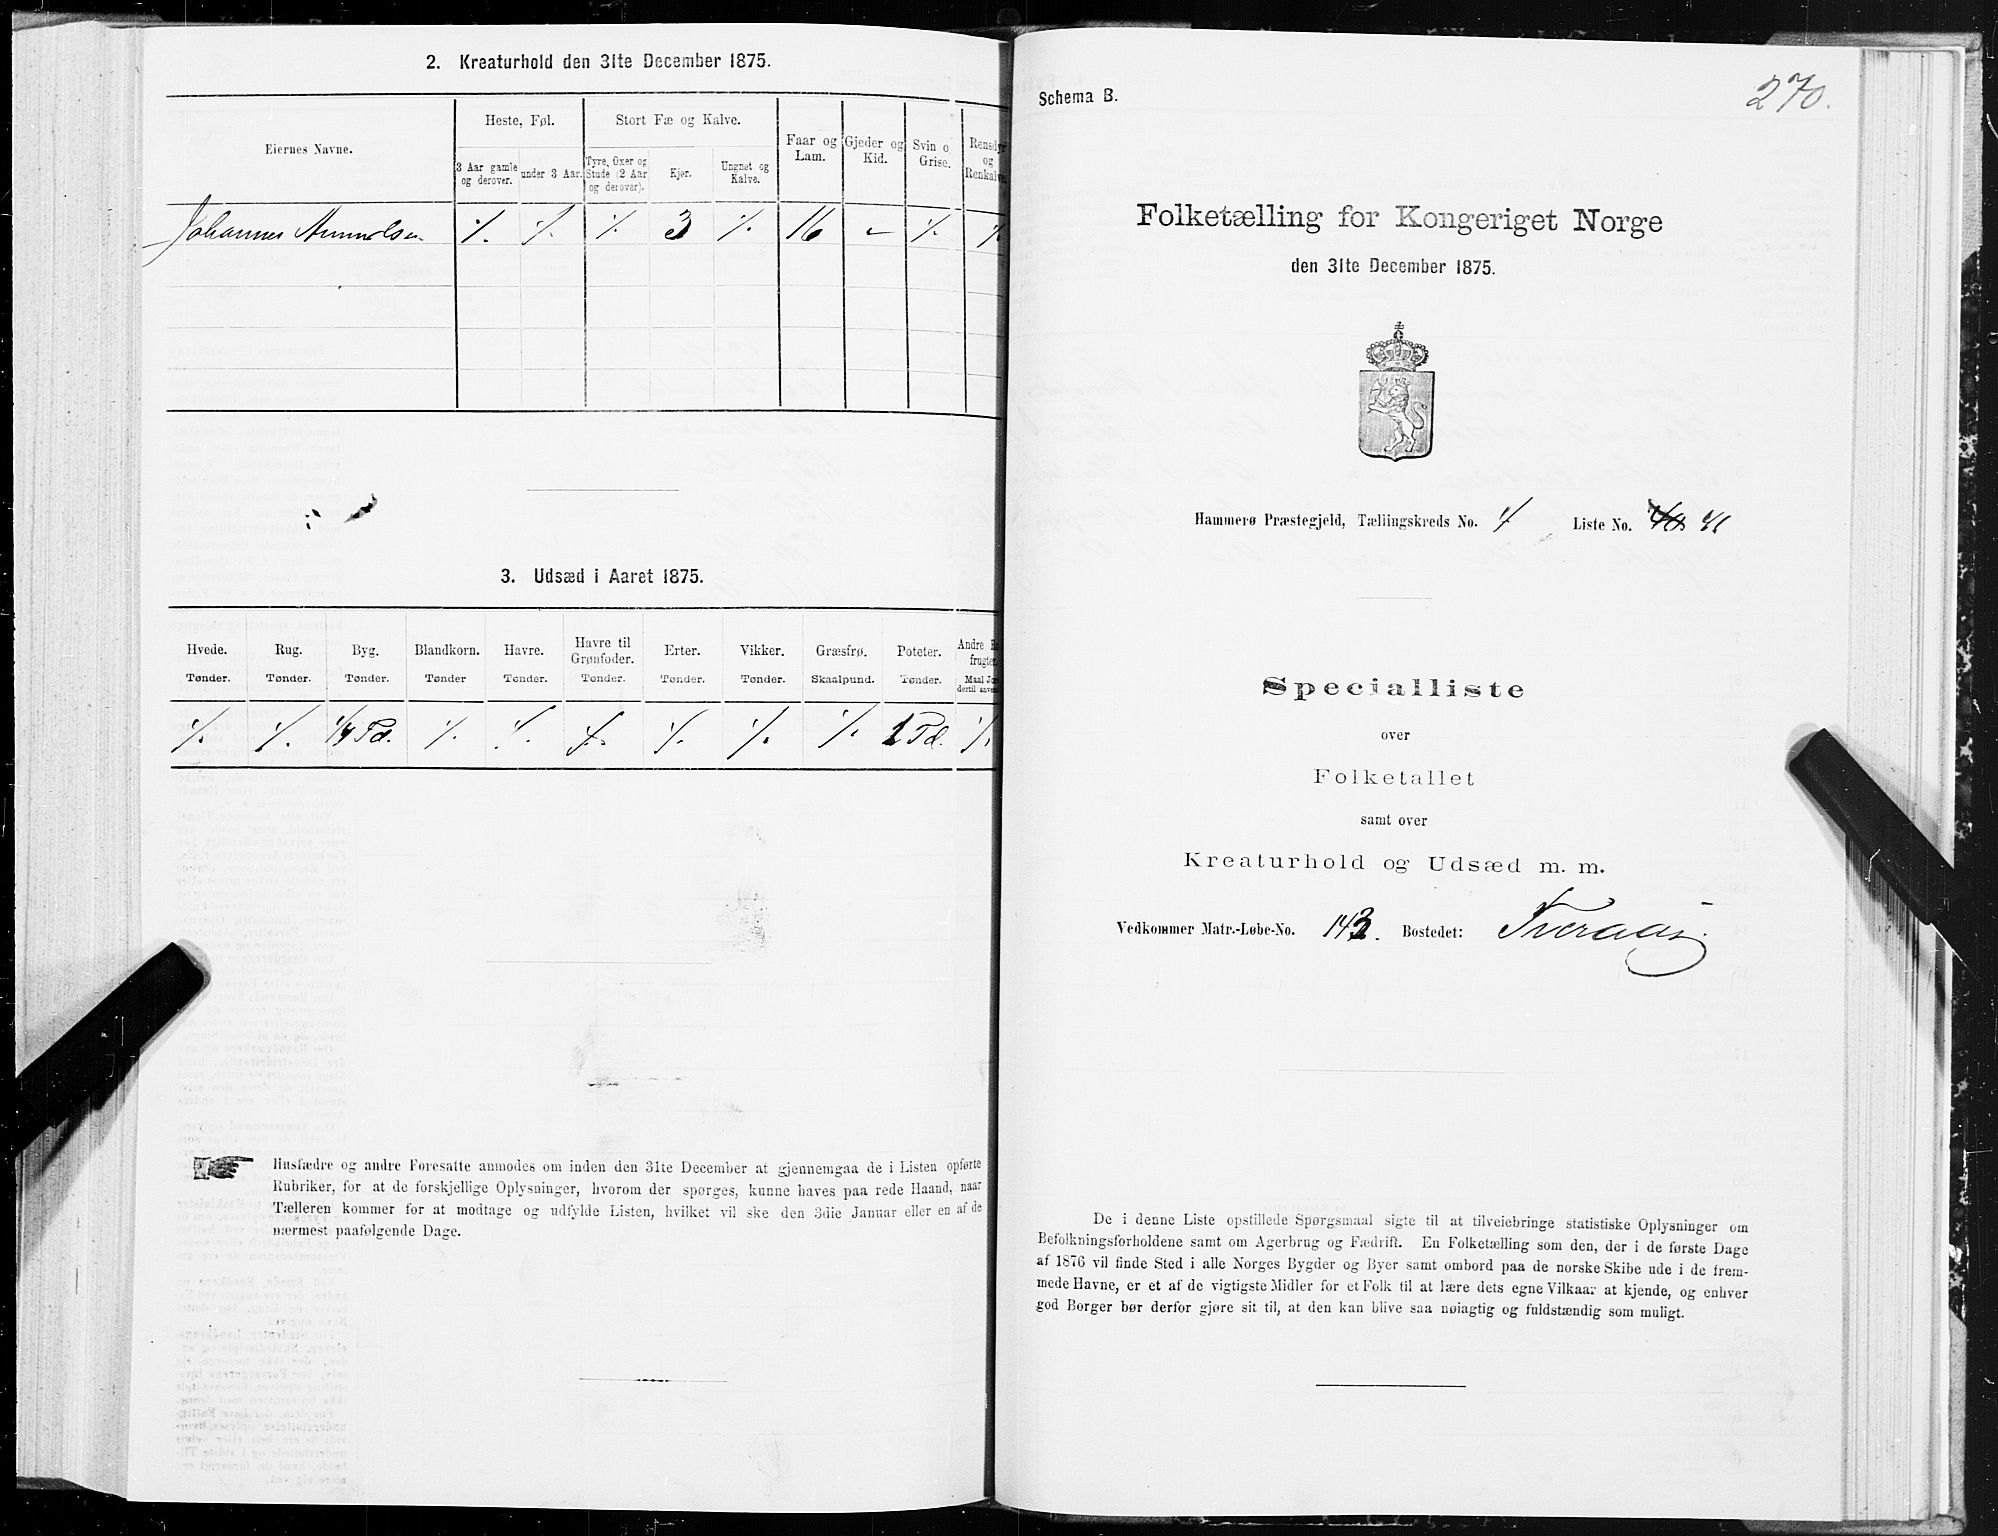 2. Kreaturhold den 31te December 1875.
Eiernes Navne.
Heste, Føl.
3 Aar gamle og derover.
under 3 Aar.
Stort Fæ og Kalve.
Tyre, Oxer og Stude (2 Aar og derover).
Kjer.
Ungnøt og Kalve.
Faar og Lam.
Gjeder og Kid.
Svin o Grise.
Rensdyr og Renkalve
Johannes ./. ./. ./. 3 ./. 16 – ./. ./.
3. Udsæd i Aaret 1875.
Hvede. Rug. Byg. Blandkorn. Havre. Havre til Grønfoder. Erter. Vikker. Græsfrø. Poteter. Andre Ro frugter
Tønder. Tønder. Tønder. Tønder Tønder. Tønder. Tønder. Tønder. Skaalpund. Tønder. Maal Jor dertil anven
./. ./. 1/4 Td. ./. ./. ./. ./. ./. ./. 1 Td. ./.
Husfædre og andre Foresatte anmodes om inden den 31te December at gjennemgaa de i Listen opførte
Rubriker, for at de forskjellige Oplysninger, hvorom der spørges, kunne haves paa rede Haand, naar
Tælleren kommer for at modtage og udfylde Listen, hvilket vil ske den 3die Januar eller en af de
nærmest paafølgende Dage.
270.
Schema B.
Folketælling for Kongeriget Norge
den 31te December 1875.
Hammerø Præstegjeld, Tællingskreds No. 4 Liste No. 40 41
Specialliste
over
Folketallet
samt over
Kreaturhold og Udsæd m. m.
Vedkommer Matr.-Løbe-No. 143. Bostedet: Tveraas.
De i denne Liste opstillede Spørgsmaal sigte til at tilveiebringe statistiske Oplysninger om
Befolkningsforholdene samt om Agerbrug og Fædrift. En Folketælling som den, der i de første Dage
af 1876 vil finde Sted i alle Norges Bygder og Byer samt ombord paa de norske Skibe ude i de frem-
mede Havne, er et af de vigtigste Midler for et Folk til at lære dets egne Vilkaar at kjende, og enhver
god Borger bør derfor gjøre sit til, at den kan blive saa nøiagtig og fuldstændig som muligt.